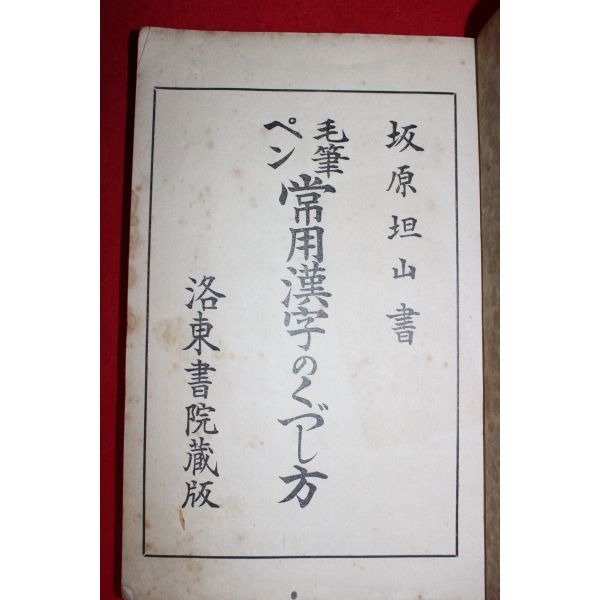 坂原坦山書
毛筆
ペン
常用漢字のくづし方
洛東書院蔵版